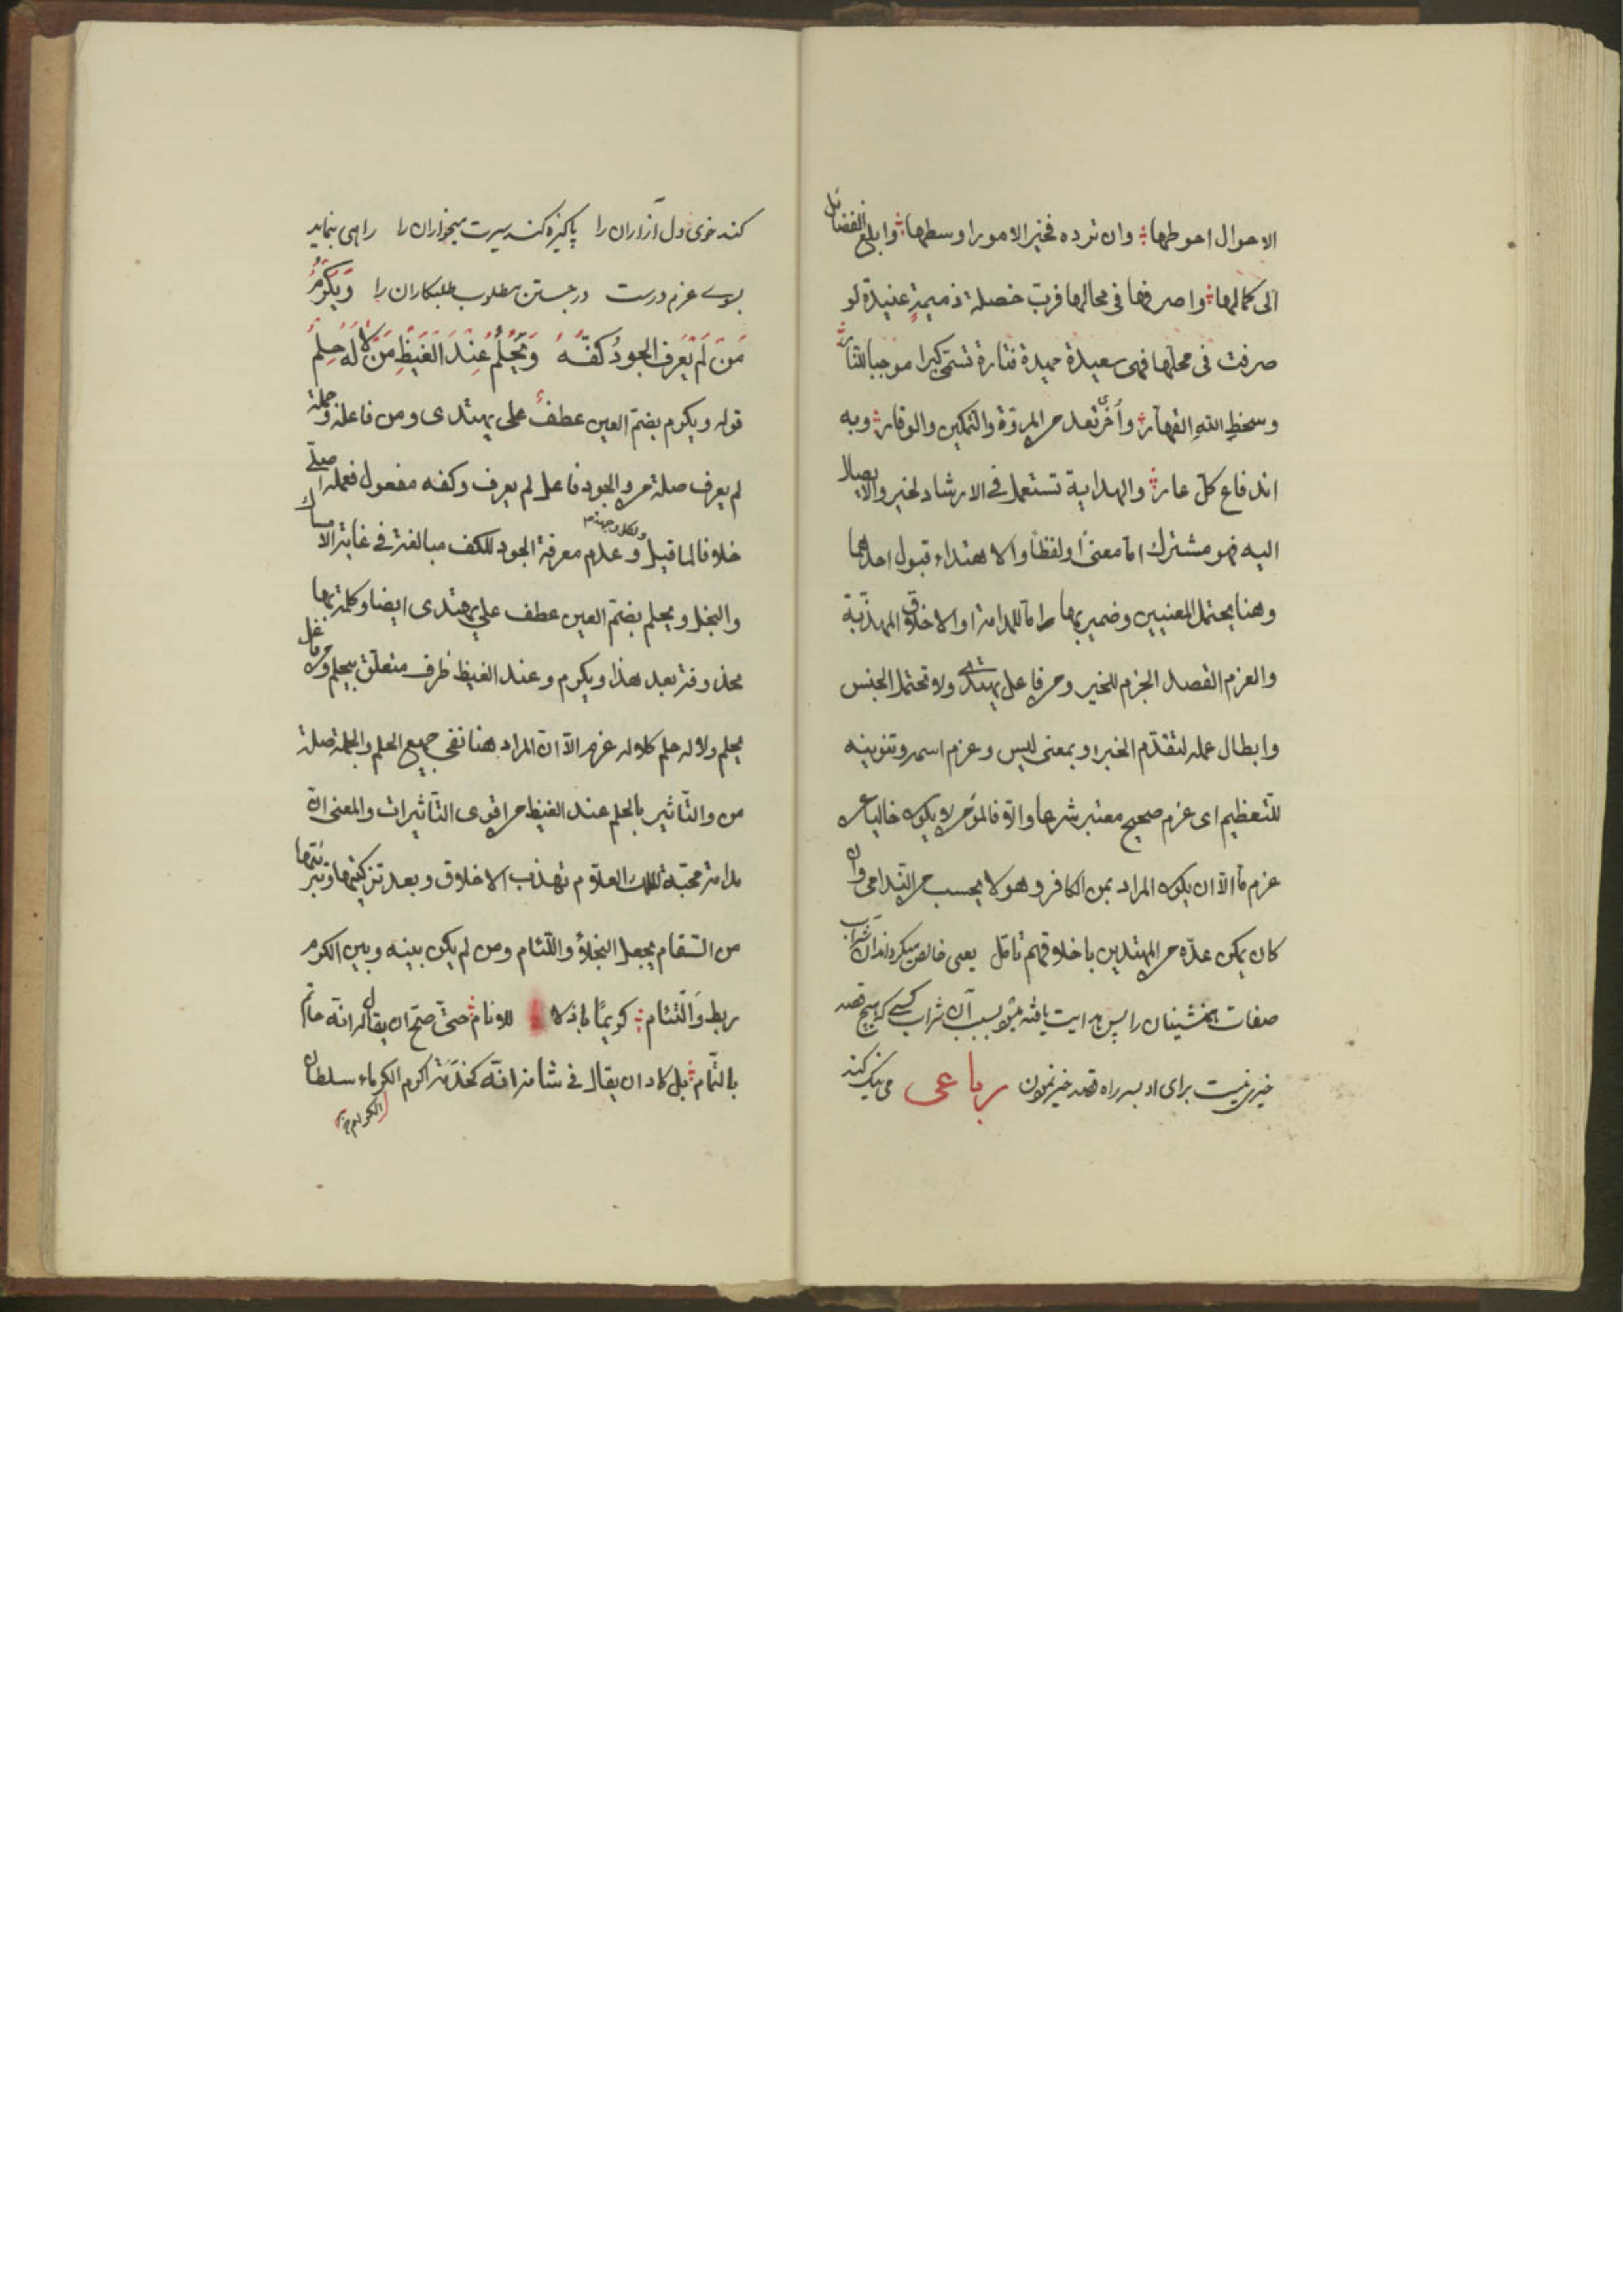 الاحوال احوطها وان ترده فخير الامور اوسطها وابلغ الفضائل
الى كمالها واصرفها فى محالها فرب خصلة ذميمة عنيدة لو
صرفت فى محلها فهى سعيدة حميدة فتارة تسمى كبرا موجبا للنار
وسخط الله القهار واخرى تعد من المروة والتمكين والوقار وبه
اندفاع كل عار والهداية تستعمل فى الارشاد لخير والايصال
اليه فهو مشترك اما معنى او لفظا والاهتداء قبول احدهما
وهنا يحتمل المعنيين وضمير بها اما للمدامة او الاخلاق المهذبة
والعزم القصد الجزم للخير ومن فاعل يهتدى ولا تحتمل الجنس
وابطال عمله لتقدم الخبر او بمعنى ليس وعزم اسمه وتنوينه
للتعظيم اى عزم صحيح معتبر شرعا والا فالمؤمن لا يكون خاليا عن
عزم ما الا ان يكون المراد بمن الكافر وهو لا يحسب من الندامى وان
كان يمكن عده من المهتدين باخلاقهم تامل يعنى خالص ميكرداند آن شراب
صفات همنشينان را پس هدايت يافته ميشود بسبب آن شراب كسى كه هيچ قصد
خيرى نيست براى او بسر راه قصد خير نمودن رباعى مى نيك كند
كند خوى دل آزاران را پاكيزه كند سيرت ميخواران را راهى بنمايد
بسوى عزم درست در جستن مطلوب طلبكاران را وَيَكْرُمُ
مَنْ لَمْ يَعْرِفِ الجودَ كفُّهُ وَيَحْلُمُ عِنْدَ الغَيْظِ مَنْ لَا لَهُ حِلْمُ
قوله ويكرم بضم العين عطف على يهتدى ومن فاعله وجملة
لم يعرف صلة من والجود فاعل لم يعرف وكفه مفعول فعمله اصلى
خلافا لما قيل ولكل وجهة وعدم معرفة الجود للكف مبالغة فى غاية الامساك
والبخل ويحلم بضم العين عطف على يهتدى ايضا وكلمة بها
محذوفة بعد هذا ويكرم وعند الغيظ ظرف متعلق بيحلم ومن فاعل
يحلم ولا له حلم كلا له عزم الا ان المراد هنا نفى جميع الحلم والجملة صلة
من والتأثير بالحلم عند الغيظ من اقوى التأثيرات والمعنى ان
مدامة محبة تلك العلام تهذب الاخلاق وبعد تزكيتها وتبرئتها
من السقام يجعل البخلاء واللئام ومن لم يكن بينه وبين الكرم
ربط والتئام كريما باذلا للانام حتى صح ان يقال له انه حاتم
بالتمام بل كاد ان يقال فى شانه انه كخدمة اكرم الكرماء سلطان
الكرام